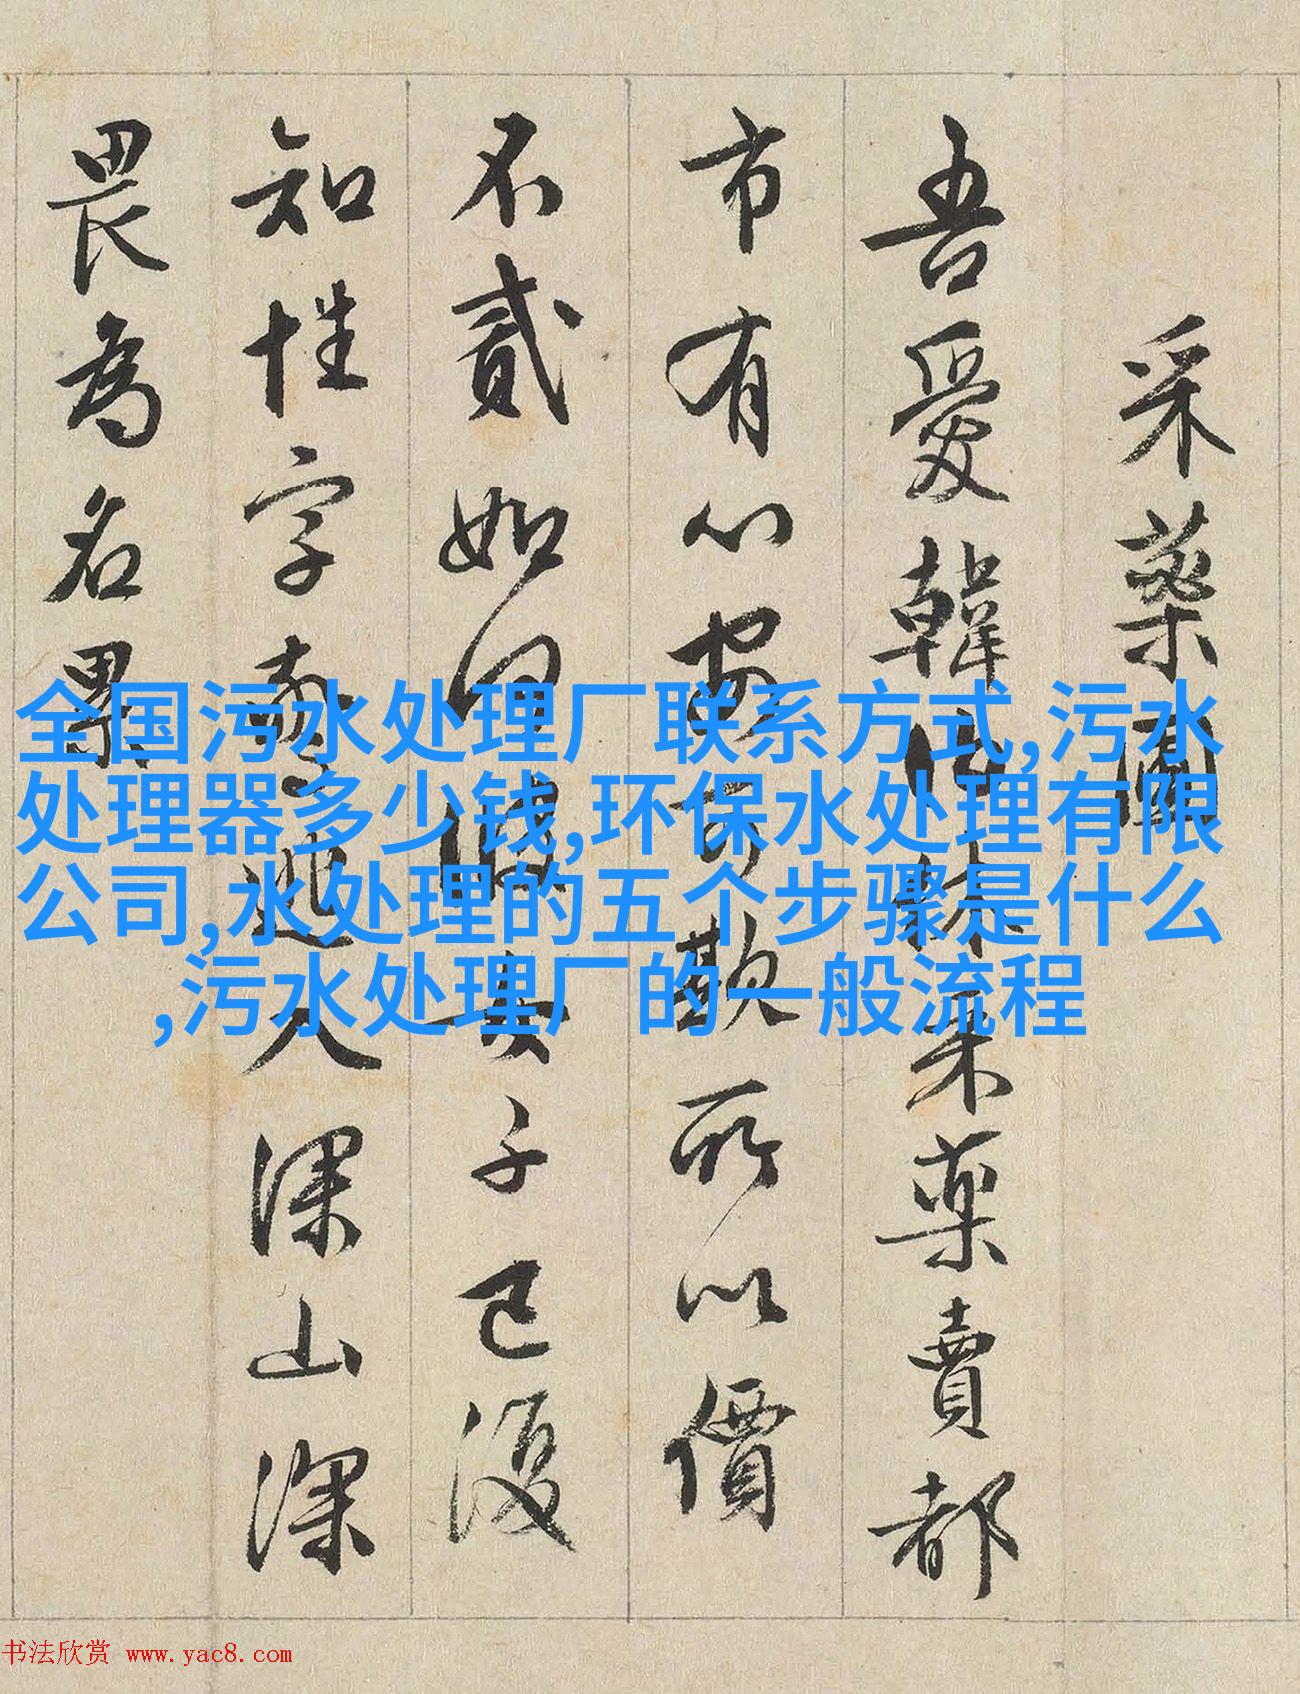 采藥圖
吾愛韓伯休采藥賣都
市有心安可欺所以價
不貳如何彼女子已復
知姓字驚逃入深山深
畏為名累
全国污水处理厂联系方式,污水
处理器多少钱,环保水处理有限
公司,水处理的五个步骤是什么
,污水处理厂的一般流程
书法欣赏 www.yac8.com